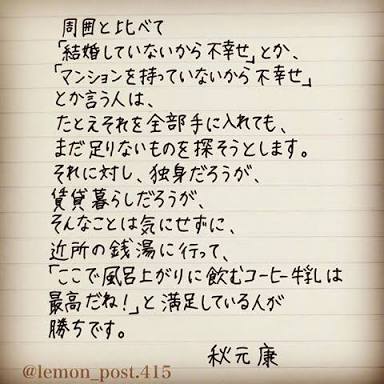 周囲と比べて
「結婚していないから不幸せ」とか、
「マンションを持っていないから不幸せ」
とか言う人は、
たとえそれを全部手に入れても、
まだ足りないものを探そうとします。
それに対し、独身だろうが、
賃貸暮らしだろうが、
そんなことは気にせずに、
近所の銭湯に行って、
「ここで風呂上がりに飲むコーヒー牛乳は
最高だね!」と満足している人が
勝ちです。
秋元康
@lemon_post.415